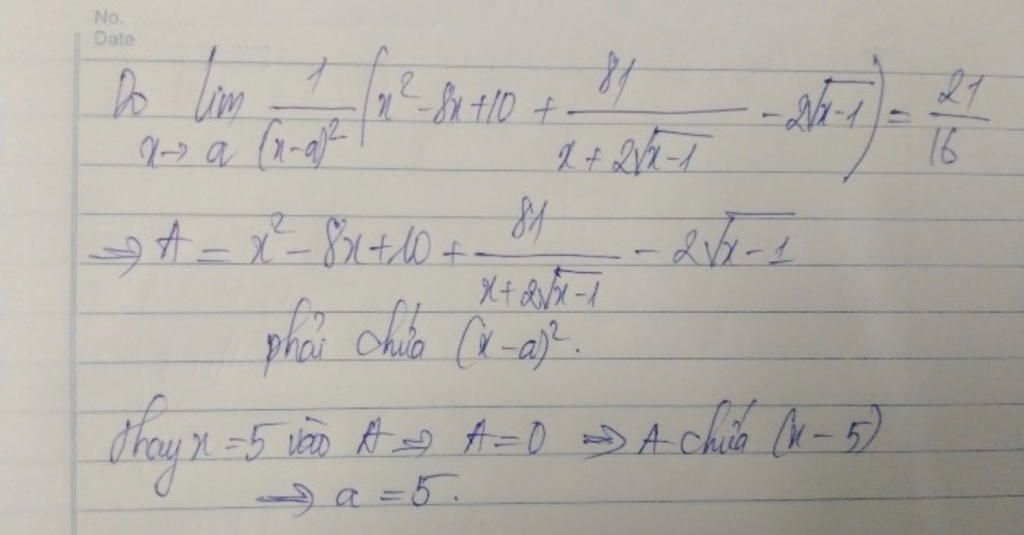 No.
Date
Do lim x→a 1/(x-a)² (x² - 8x + 10 + 81/(x + 2√(x-1)) - 2√(x-1)) = 21/16
⇒ A = x² - 8x + 10 + 81/(x + 2√(x-1)) - 2√(x-1)
phải chứa (x-a)².
Thay x = 5 vào A ⇒ A = 0 ⇒ A chứa (x - 5)
⇒ a = 5.